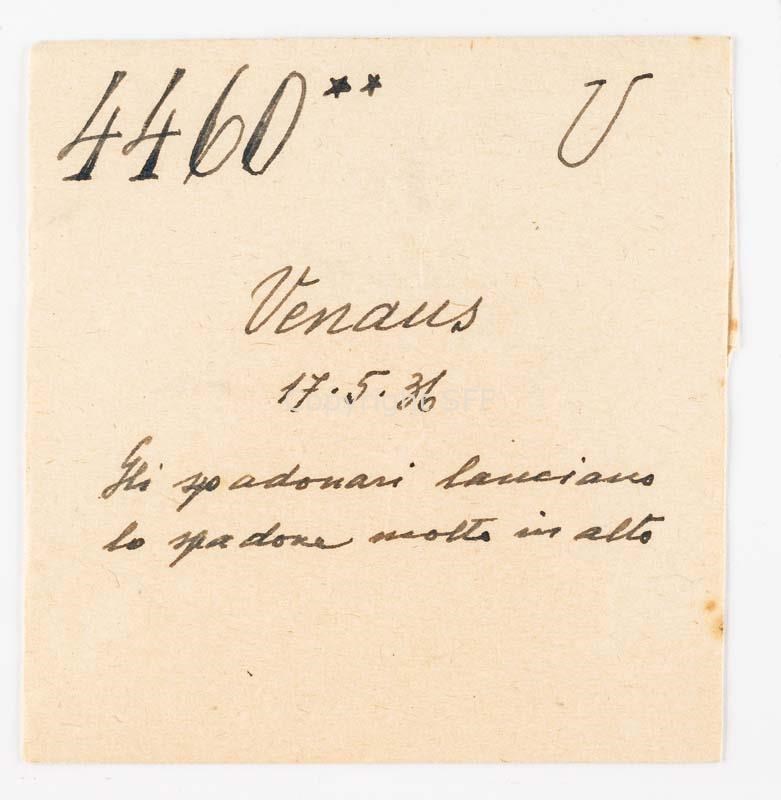 4460** U
Venaus
17.5.36
Gli spadonari lanciano
lo spadone molto in alto